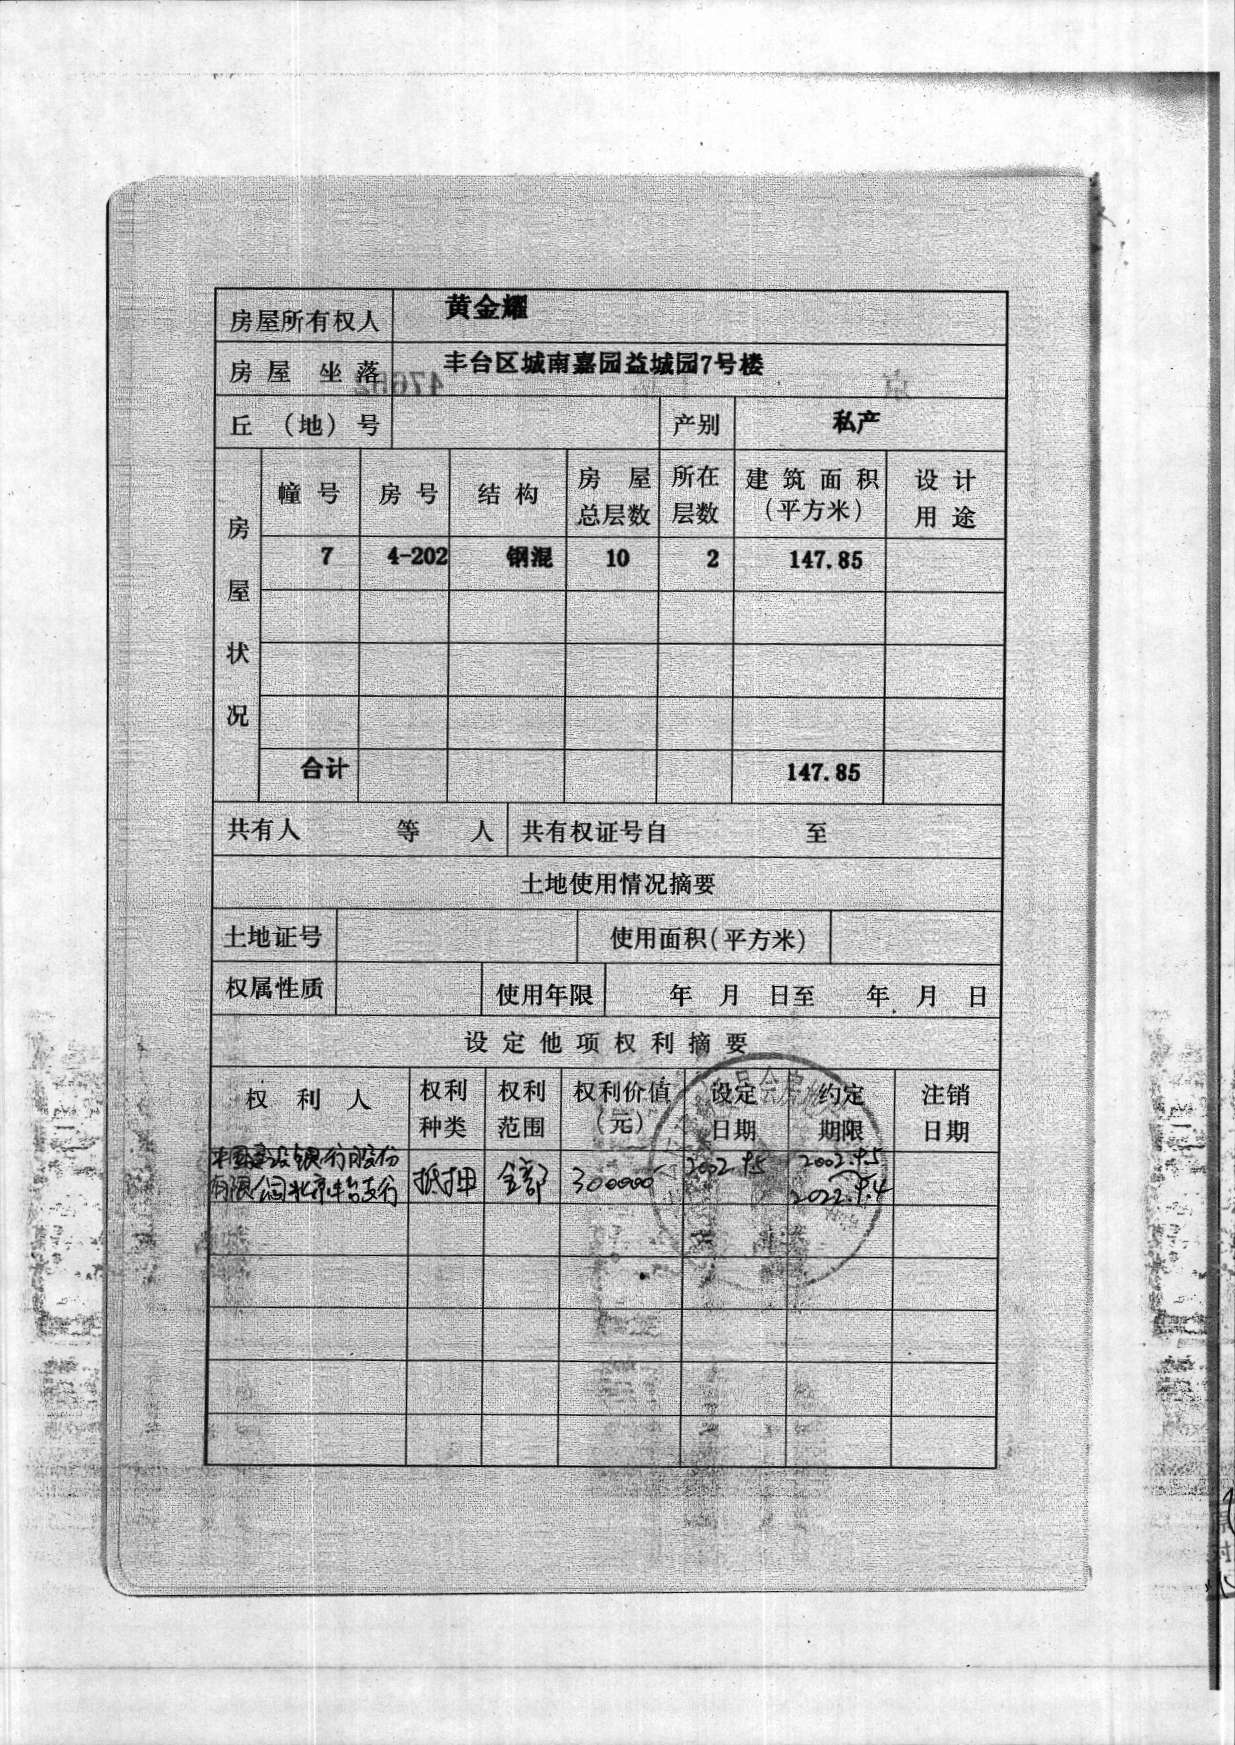 房屋所有权人 黄金耀
房屋坐落 丰台区城南嘉园益城园7号楼
丘（地）号 产别 私产
房屋状况
幢号 房号 结构 房屋总层数 所在层数 建筑面积（平方米） 设计用途
7 4-202 钢混 10 2 147.85
合计 147.85
共有人 等 人 共有权证号自 至
土地使用情况摘要
土地证号 使用面积(平方米)
权属性质 使用年限 年 月 日至 年 月 日
设定他项权利摘要
权利人 权利种类 权利范围 权利价值（元） 设定日期 约定期限 注销日期
中国建设银行股份 抵押 全部 300000 2002.9.5 2002.9.5
有限公司北京丰台支行 2022.9.4